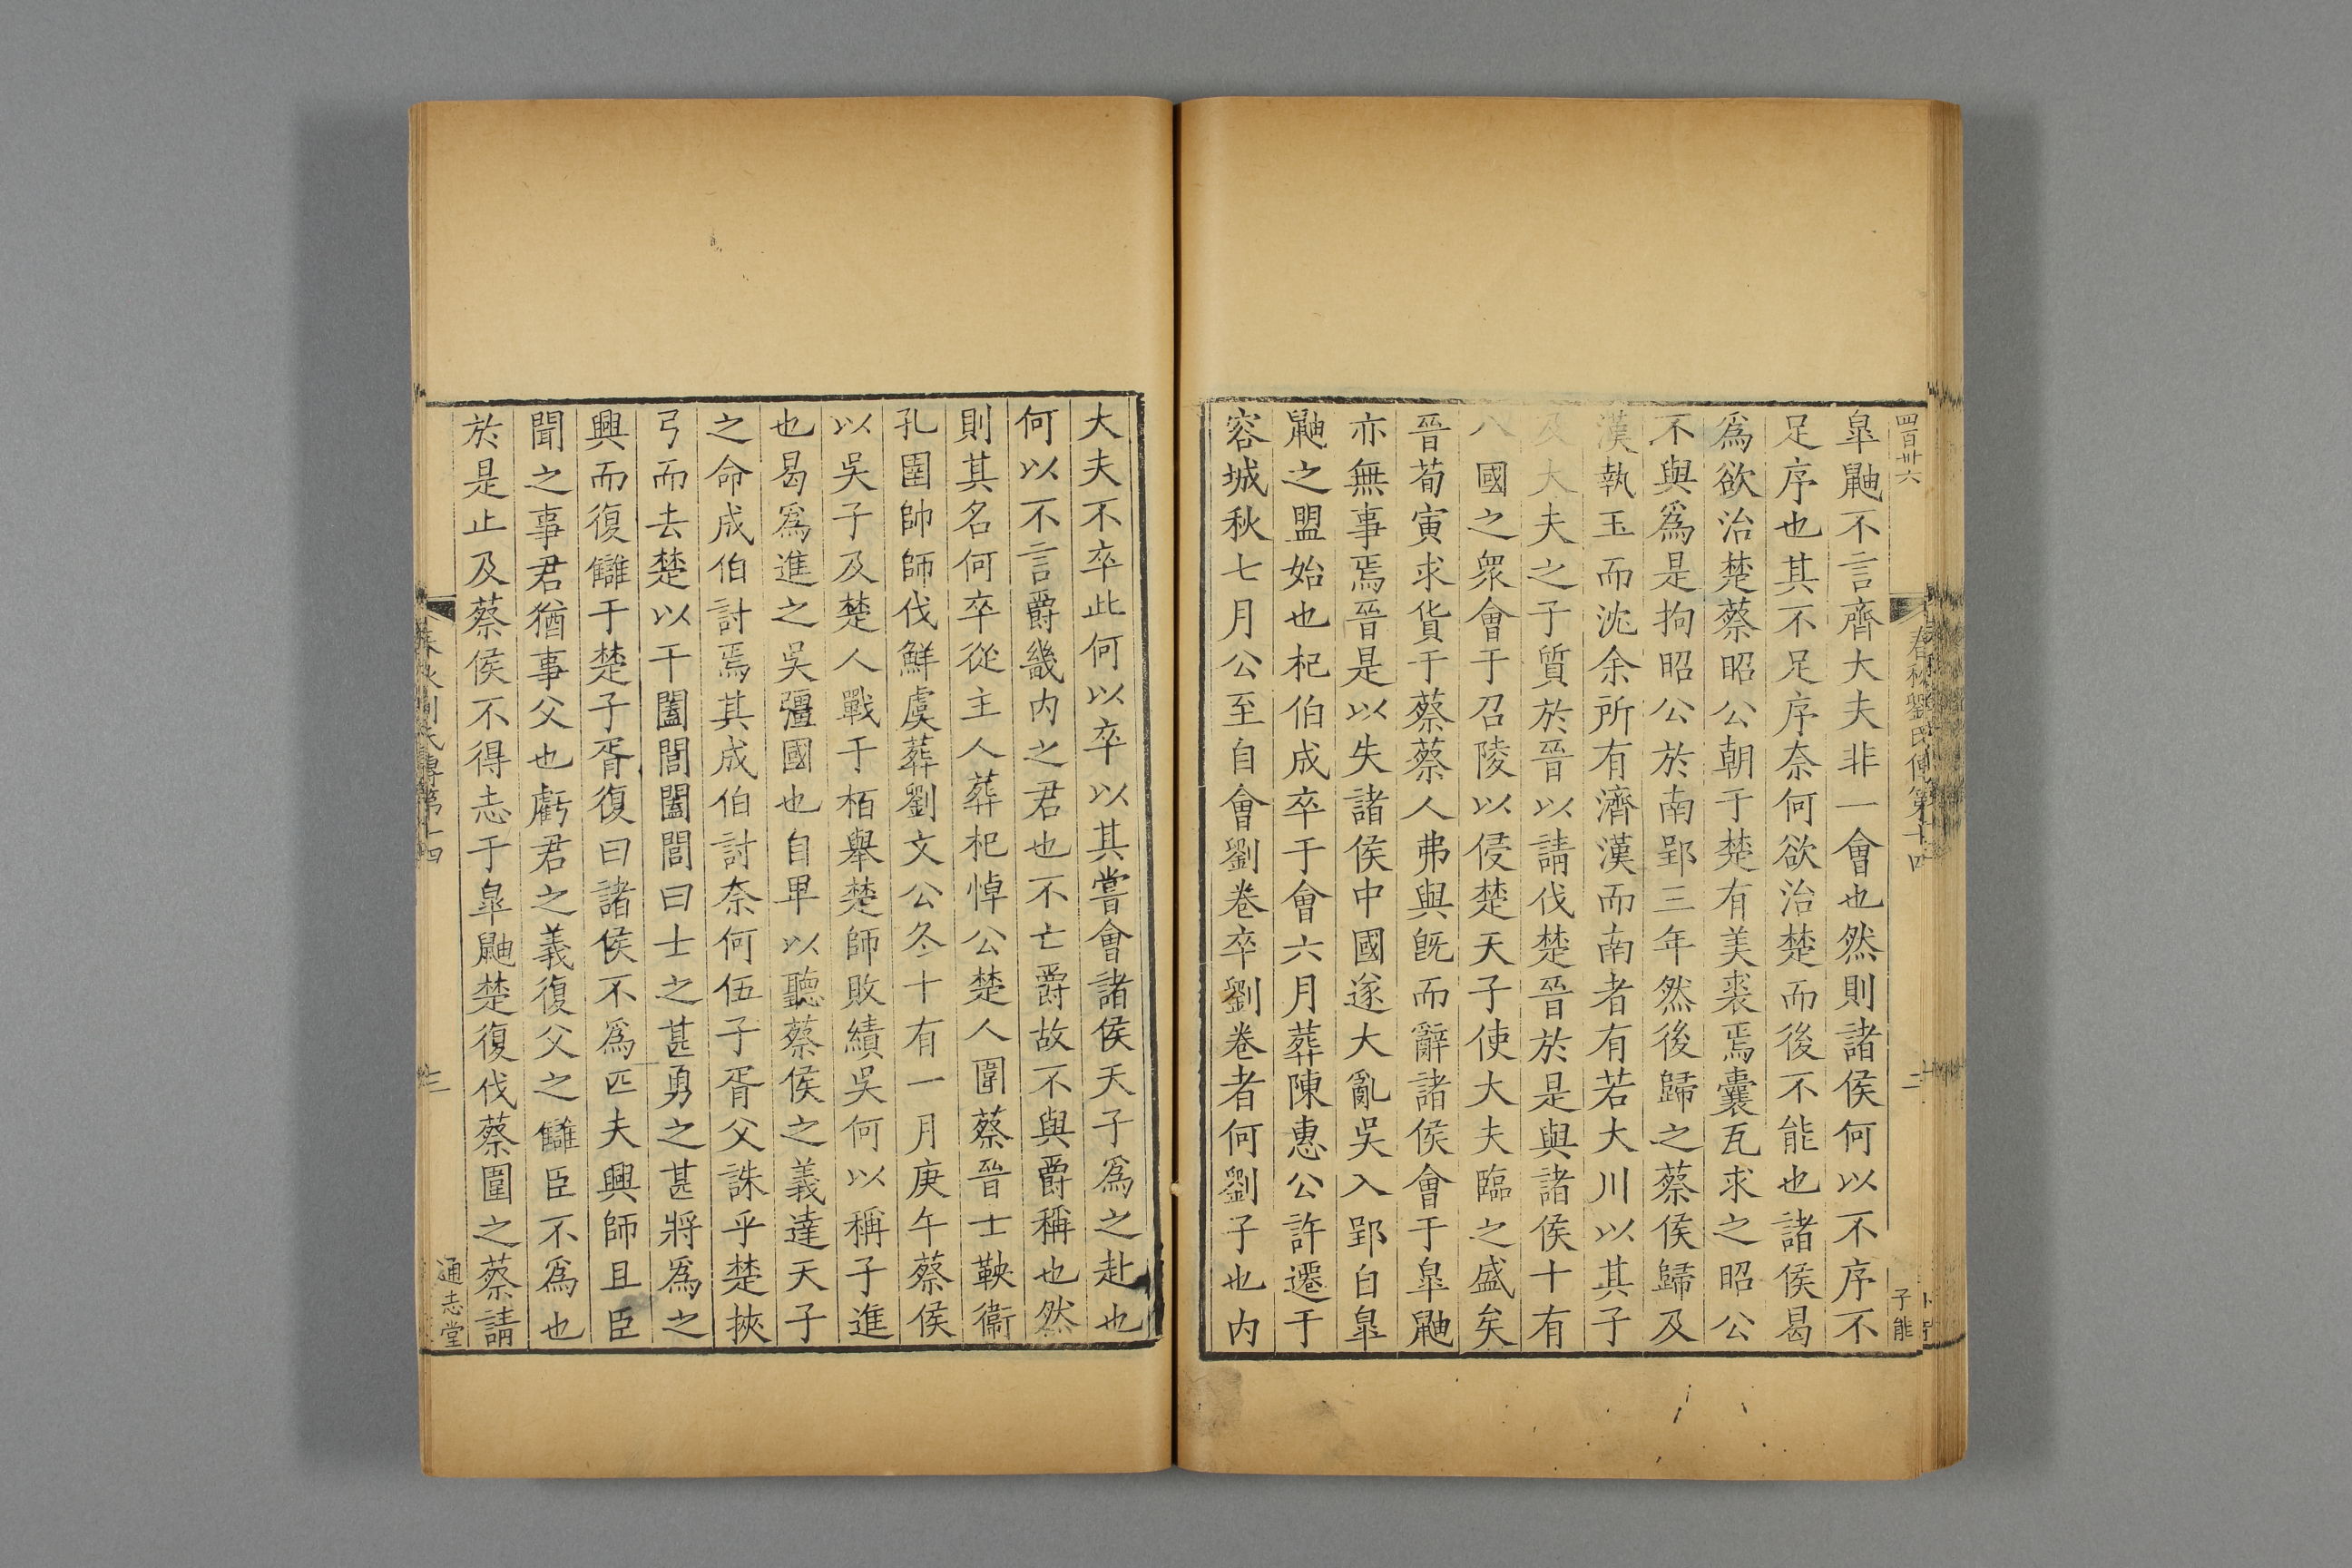 四百卅六
春秋劉氏傳第十四
二
子能
皐鼬不言齊大夫非一會也然則諸侯何以不序不
足序也其不足序奈何欲治楚而後不能也諸侯曷
爲欲治楚蔡昭公朝于楚有美裘焉囊瓦求之昭公
不與爲是拘昭公於南郢三年然後歸之蔡侯歸及
漢執玉而沈余所有濟漢而南者有若大川以其子
及大夫之子質於晉以請伐楚晉於是與諸侯十有
八國之衆會于召陵以侵楚天子使大夫臨之盛矣
晉荀寅求貨于蔡蔡人弗與旣而辭諸侯會于皐鼬
亦無事焉晉是以失諸侯中國遂大亂吳入郢自皐
鼬之盟始也杞伯成卒于會六月葬陳惠公許遷于
容城秋七月公至自會劉卷卒劉卷者何劉子也内
大夫不卒此何以卒以其嘗會諸侯天子爲之赴也
何以不言爵畿内之君也不亡爵故不與爵稱也然
則其名何卒從主人葬杞悼公楚人圍蔡晉士鞅衞
孔圉帥師伐鮮虞葬劉文公冬十有一月庚午蔡侯
以吳子及楚人戰于栢舉楚師敗績吳何以稱子進
也曷爲進之吳彊國也自甲以聽蔡侯之義達天子
之命成伯討焉其成伯討奈何伍子胥父誅乎楚挾
弓而去楚以干闔閭闔閭曰士之甚勇之甚將爲之
興而復讎于楚子胥復曰諸侯不爲匹夫興師且臣
聞之事君猶事父也虧君之義復父之讎臣不爲也
於是止及蔡侯不得志于皐鼬楚復伐蔡圍之蔡請
春秋劉氏傳第十四
三
通志堂